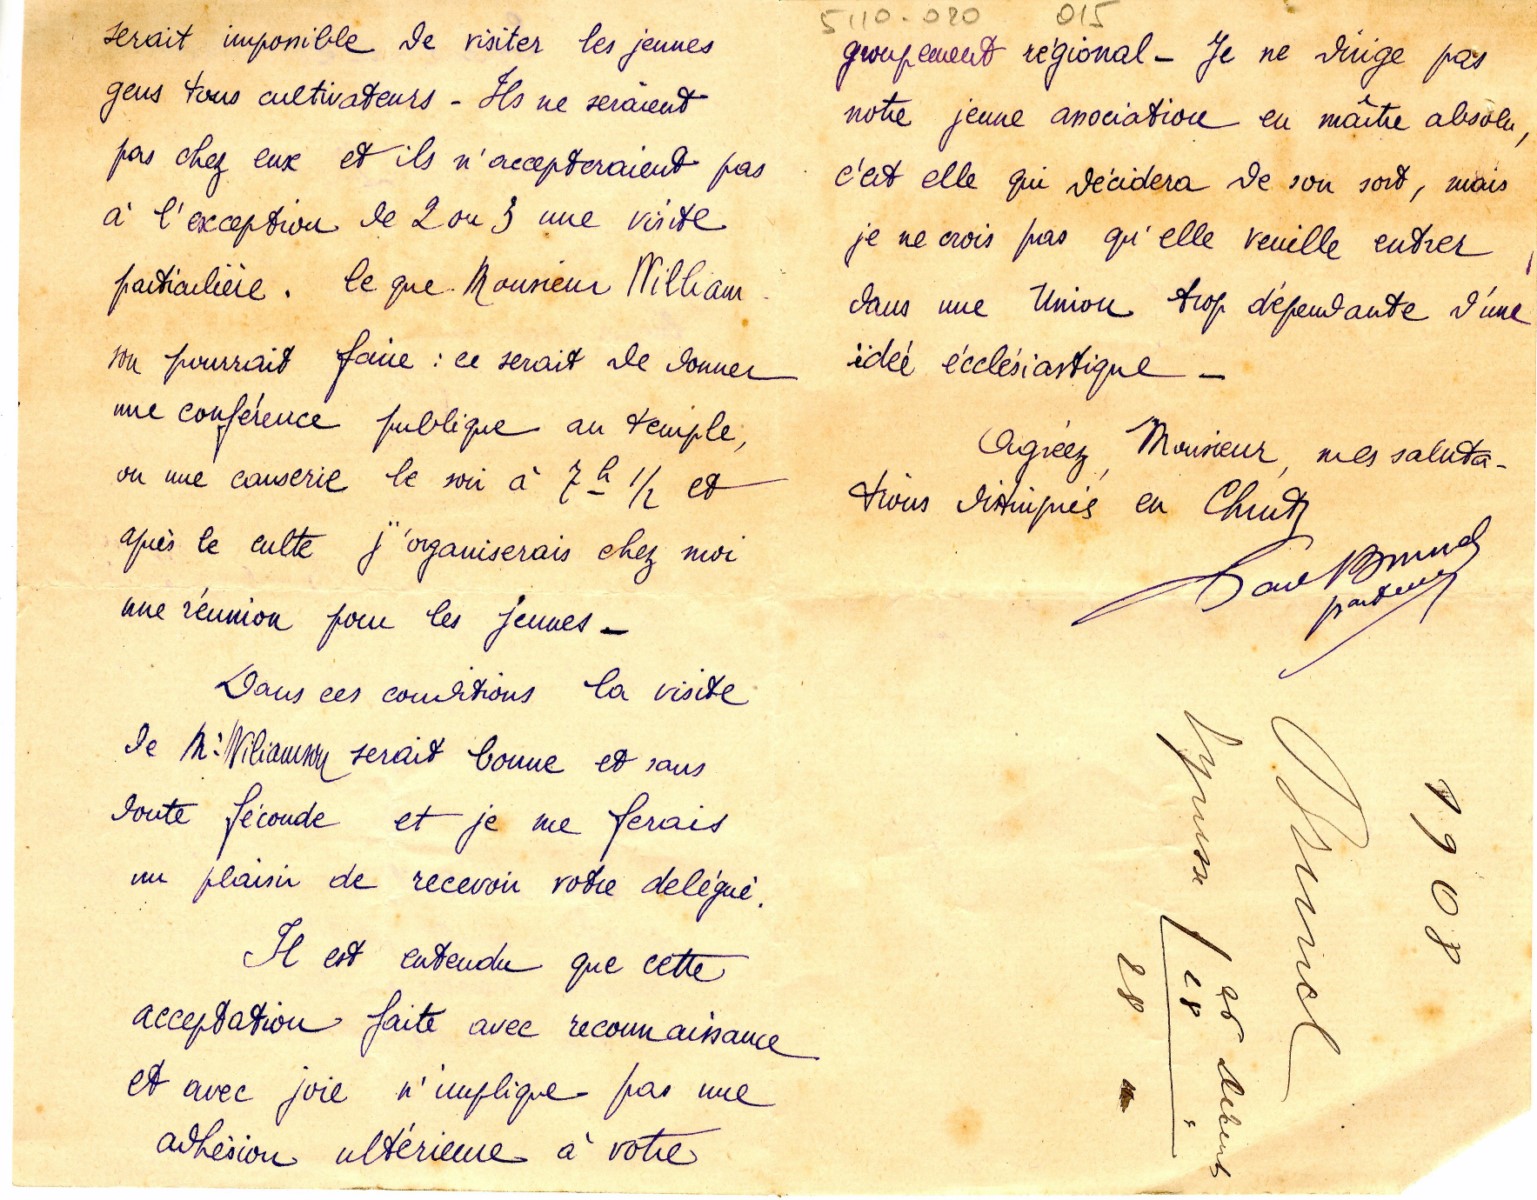 serait impossible de visiter les jeunes
gens tous cultivateurs - Ils ne seraient
pas chez eux et ils n'accepteraient pas
à l'exception de 2 ou 3 une visite
particulière. Ce que Monsieur William
son pourrait faire : ce serait de donner
une conférence publique au temple,
ou une causerie le soir à 7 h 1/2 et
après le culte j'organiserais chez moi
une réunion pour les jeunes -
Dans ces conditions la visite
de Mr Wiliamson serait bonne et sans
doute féconde et je me ferais
un plaisir de recevoir votre delégué.
Il est entendu que cette
acceptation faite avec reconnaissance
et avec joie n'implique pas une
adhésion ultérieure à votre
5110-020 015
groupement régional - Je ne dirige pas
notre jeune association en maître absolu,
c'est elle qui décidera de son sort, mais
je ne crois pas qu'elle veuille entrer
dans une Union trop dépendante d'une
idéé écclésiastique -
Agréez, Monsieur, mes saluta-
tions distingués en Christ
Paul Brunel
pasteur
1908
Brunel
28
28